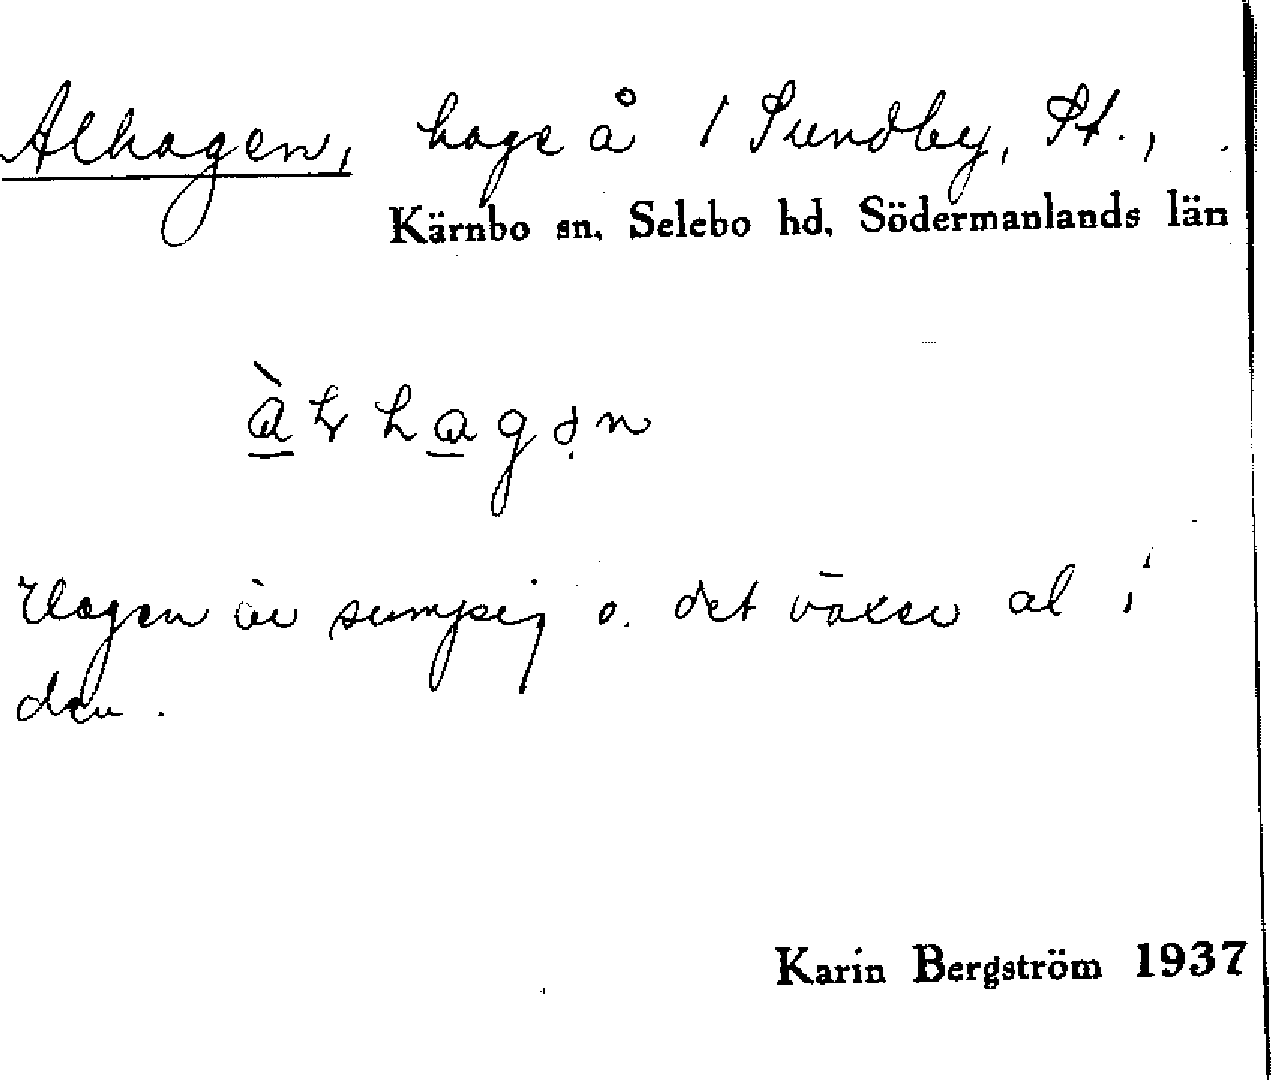 Alhagen, hage å 1 Sundby, St.,
Kärnbo sn. Selebo hd. Södermanlands län
Hagen är sumpig o. det växer al i
den.
Karin Bergström 1937